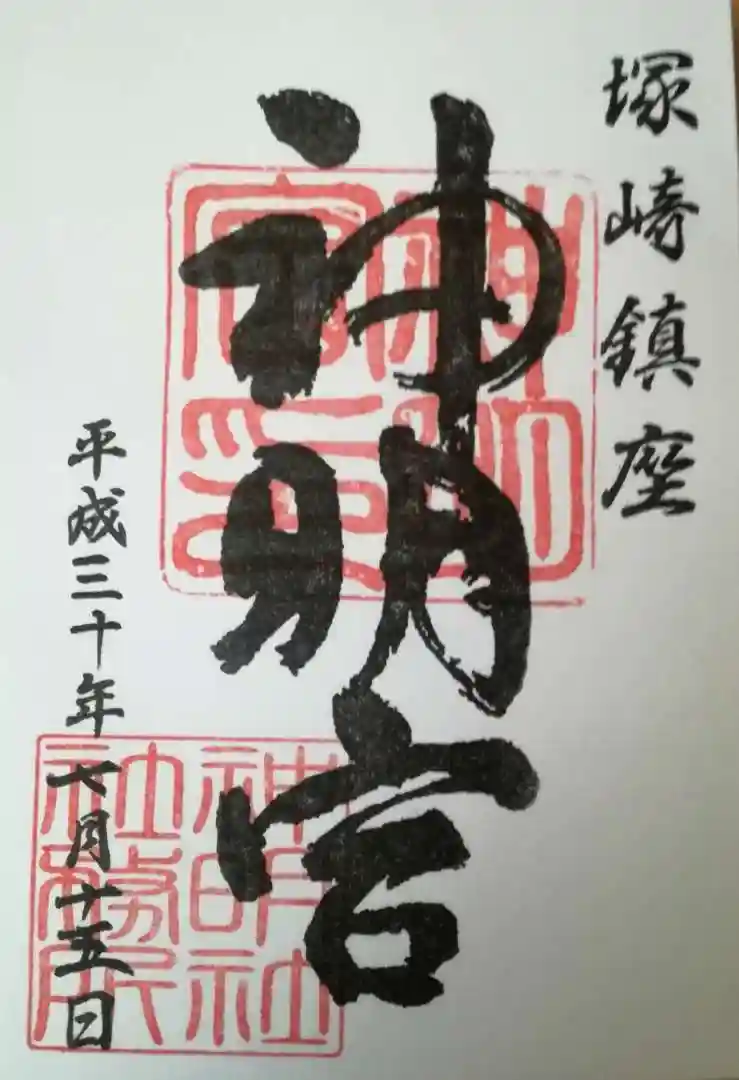 塚崎鎮座
神明宮
平成三十年七月十五日
神明宮印
神明社
社務所